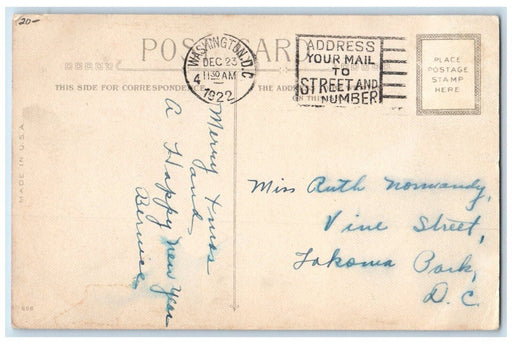 20-
POST CARD
WASHINGTON, D.C.
DEC 23
11 30 AM
4
1922
ADDRESS
YOUR MAIL
TO
STREET AND
NUMBER
PLACE
POSTAGE
STAMP
HERE
THIS SIDE FOR CORRESPONDENCE
THE ADDRESS
ON THIS
MADE IN U.S.A.
Merry Xmas
and
A Happy new year
Bernice
Miss Ruth Normandy,
Vine Street,
Takoma Park,
D.C.